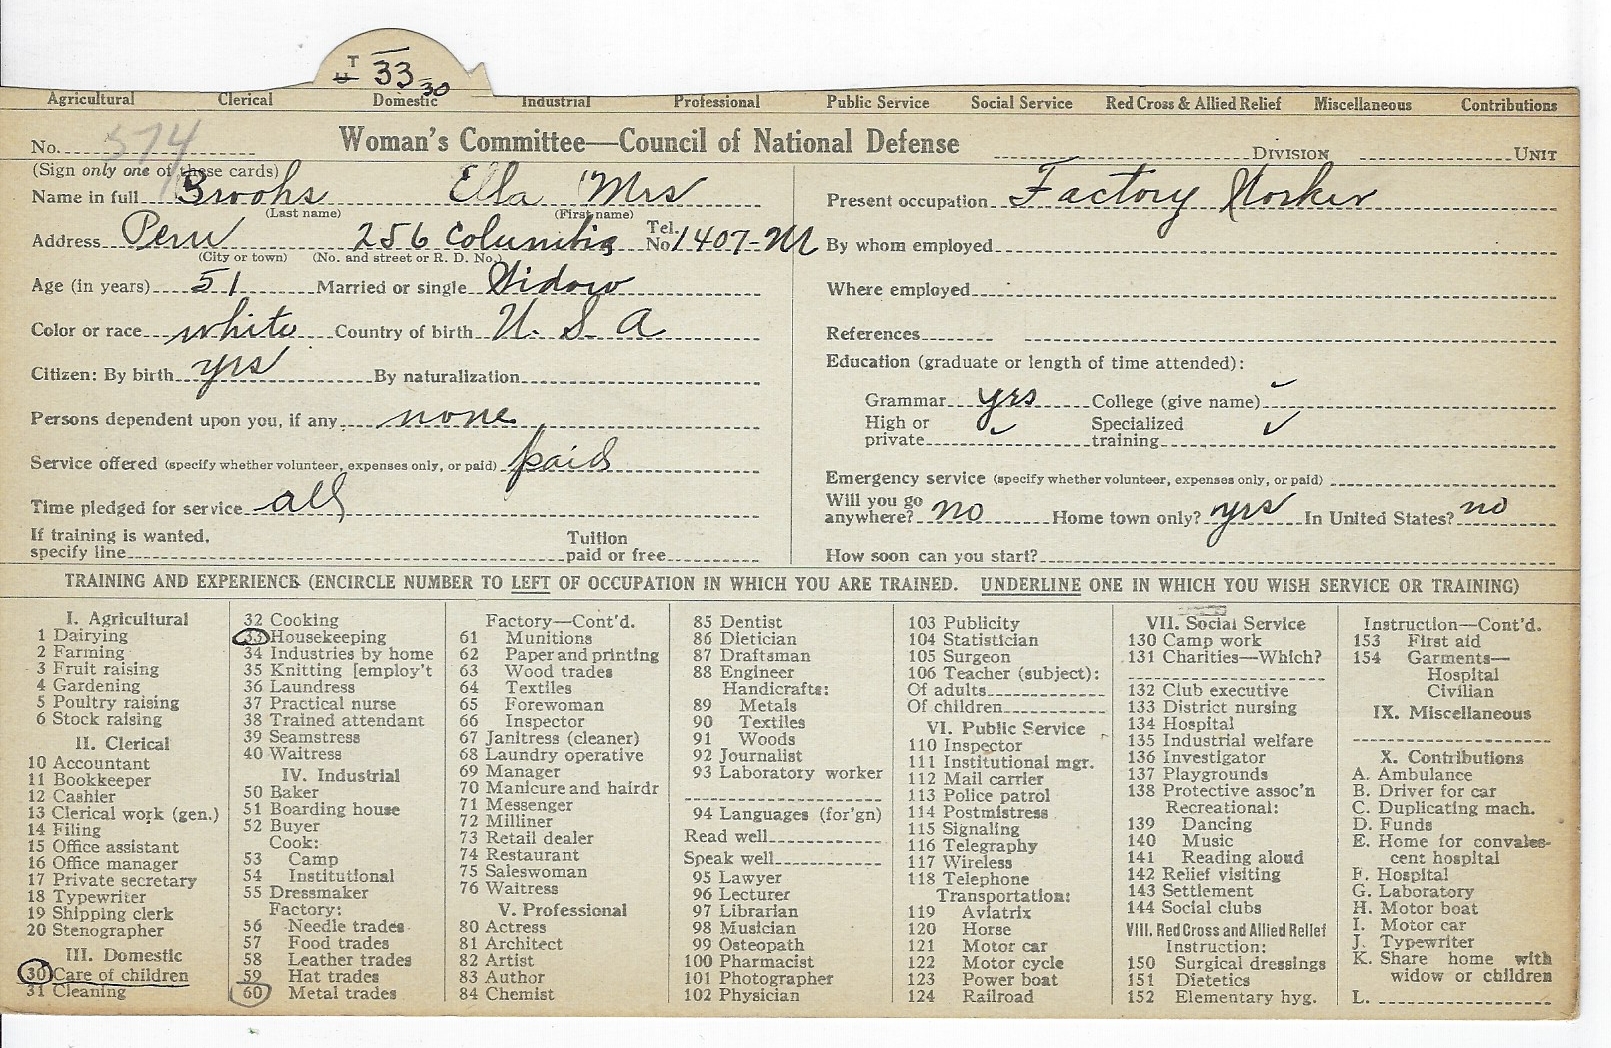 T
U 33
30
Agricultural Clerical Domestic Industrial Professional Public Service Social Service Red Cross & Allied Relief Miscellaneous Contributions
No. 574 Woman's Committee—Council of National Defense DIVISION UNIT
(Sign only one of these cards)
Name in full Brooks Ella Mrs
(Last name) (First name)
Address Peru 256 Columbia Tel. No 1407-M
(City or town) (No. and street or R. D. No.)
Age (in years) 51 Married or single Widow
Color or race white Country of birth U. S. A
Citizen: By birth yes By naturalization
Persons dependent upon you, if any none
Service offered (specify whether volunteer, expenses only, or paid) paid
Time pledged for service all
If training is wanted, specify line Tuition paid or free
Present occupation Factory Worker
By whom employed
Where employed
References
Education (graduate or length of time attended):
Grammar yes College (give name) ✓
High or private ✓ Specialized training ✓
Emergency service (specify whether volunteer, expenses only, or paid)
Will you go anywhere? no Home town only? yes In United States? no
How soon can you start?
TRAINING AND EXPERIENCE (ENCIRCLE NUMBER TO LEFT OF OCCUPATION IN WHICH YOU ARE TRAINED. UNDERLINE ONE IN WHICH YOU WISH SERVICE OR TRAINING)
I. Agricultural
1 Dairying
2 Farming
3 Fruit raising
4 Gardening
5 Poultry raising
6 Stock raising
II. Clerical
10 Accountant
11 Bookkeeper
12 Cashier
13 Clerical work (gen.)
14 Filing
15 Office assistant
16 Office manager
17 Private secretary
18 Typewriter
19 Shipping clerk
20 Stenographer
III. Domestic
30 Care of children
31 Cleaning
32 Cooking
33 Housekeeping
34 Industries by home
35 Knitting [employ't
36 Laundress
37 Practical nurse
38 Trained attendant
39 Seamstress
40 Waitress
IV. Industrial
50 Baker
51 Boarding house
52 Buyer
Cook:
53 Camp
54 Institutional
55 Dressmaker
Factory:
56 Needle trades
57 Food trades
58 Leather trades
59 Hat trades
60 Metal trades
Factory—Cont'd.
61 Munitions
62 Paper and printing
63 Wood trades
64 Textiles
65 Forewoman
66 Inspector
67 Janitress (cleaner)
68 Laundry operative
69 Manager
70 Manicure and hairdr
71 Messenger
72 Milliner
73 Retail dealer
74 Restaurant
75 Saleswoman
76 Waitress
V. Professional
80 Actress
81 Architect
82 Artist
83 Author
84 Chemist
85 Dentist
86 Dietician
87 Draftsman
88 Engineer
Handicrafts:
89 Metals
90 Textiles
91 Woods
92 Journalist
93 Laboratory worker
94 Languages (for'gn)
Read well
Speak well
95 Lawyer
96 Lecturer
97 Librarian
98 Musician
99 Osteopath
100 Pharmacist
101 Photographer
102 Physician
103 Publicity
104 Statistician
105 Surgeon
106 Teacher (subject):
Of adults
Of children
VI. Public Service
110 Inspector
111 Institutional mgr.
112 Mail carrier
113 Police patrol
114 Postmistress
115 Signaling
116 Telegraphy
117 Wireless
118 Telephone
Transportation:
119 Aviatrix
120 Horse
121 Motor car
122 Motor cycle
123 Power boat
124 Railroad
VII. Social Service
130 Camp work
131 Charities—Which?
132 Club executive
133 District nursing
134 Hospital
135 Industrial welfare
136 Investigator
137 Playgrounds
138 Protective assoc'n
Recreational:
139 Dancing
140 Music
141 Reading aloud
142 Relief visiting
143 Settlement
144 Social clubs
VIII. Red Cross and Allied Relief
Instruction:
150 Surgical dressings
151 Dietetics
152 Elementary hyg.
Instruction—Cont'd.
153 First aid
154 Garments—
Hospital
Civilian
IX. Miscellaneous
X. Contributions
A. Ambulance
B. Driver for car
C. Duplicating mach.
D. Funds
E. Home for convales-
cent hospital
F. Hospital
G. Laboratory
H. Motor boat
I. Motor car
J. Typewriter
K. Share home with
widow or children
L.